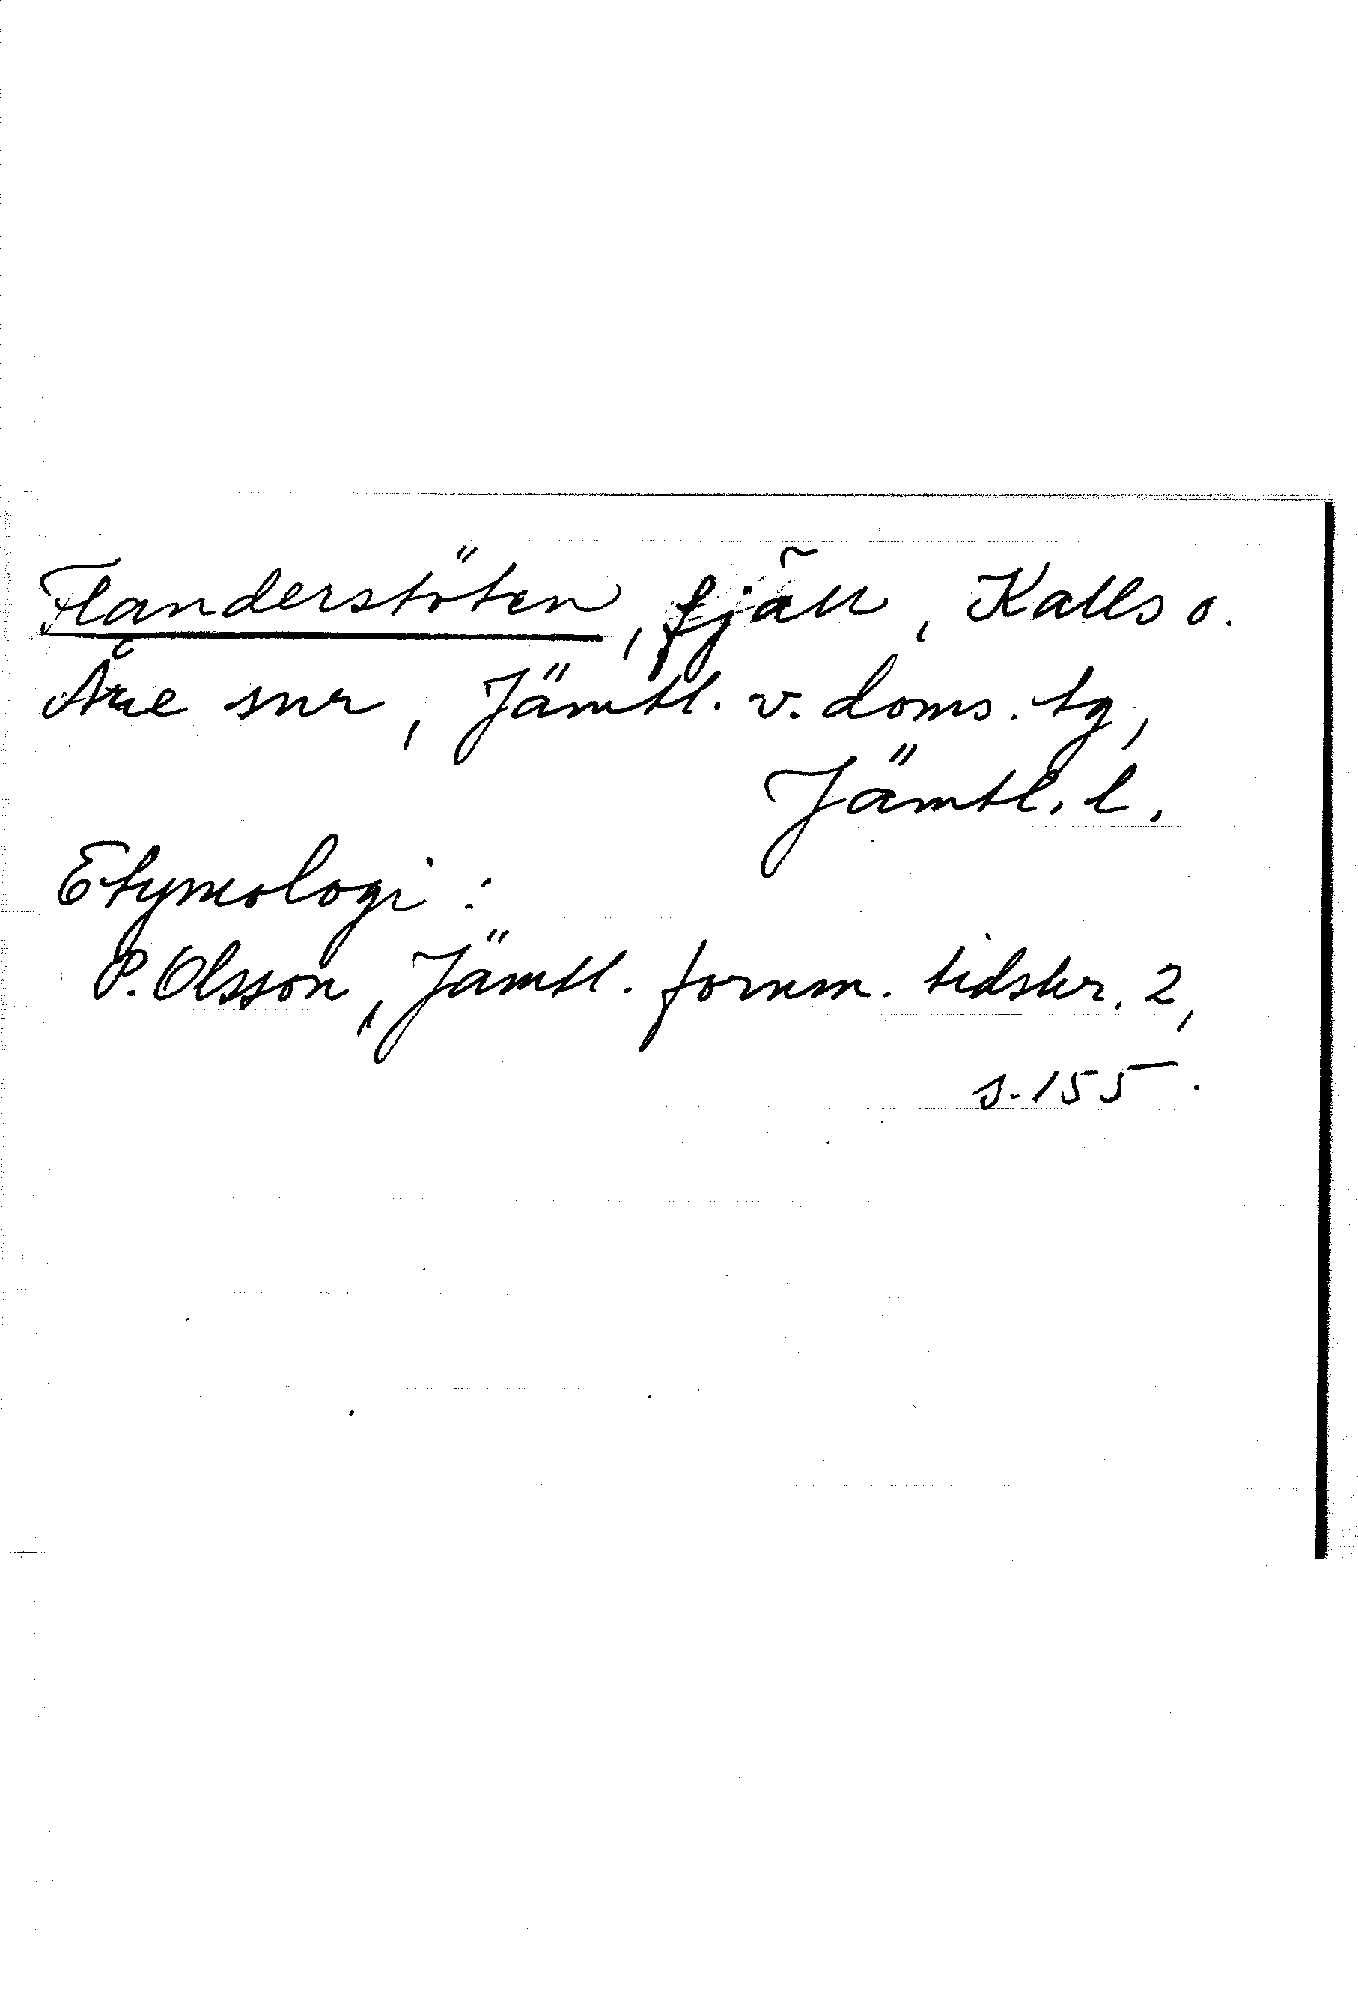 Flanderstöten, fjäll, Kalls o.
Åre snr, Jämtl. v. doms. tg,
Jämtl. l.
Etymologi:
P. Olsson, Jämtl. fornm. tidskr. 2,
s. 155.